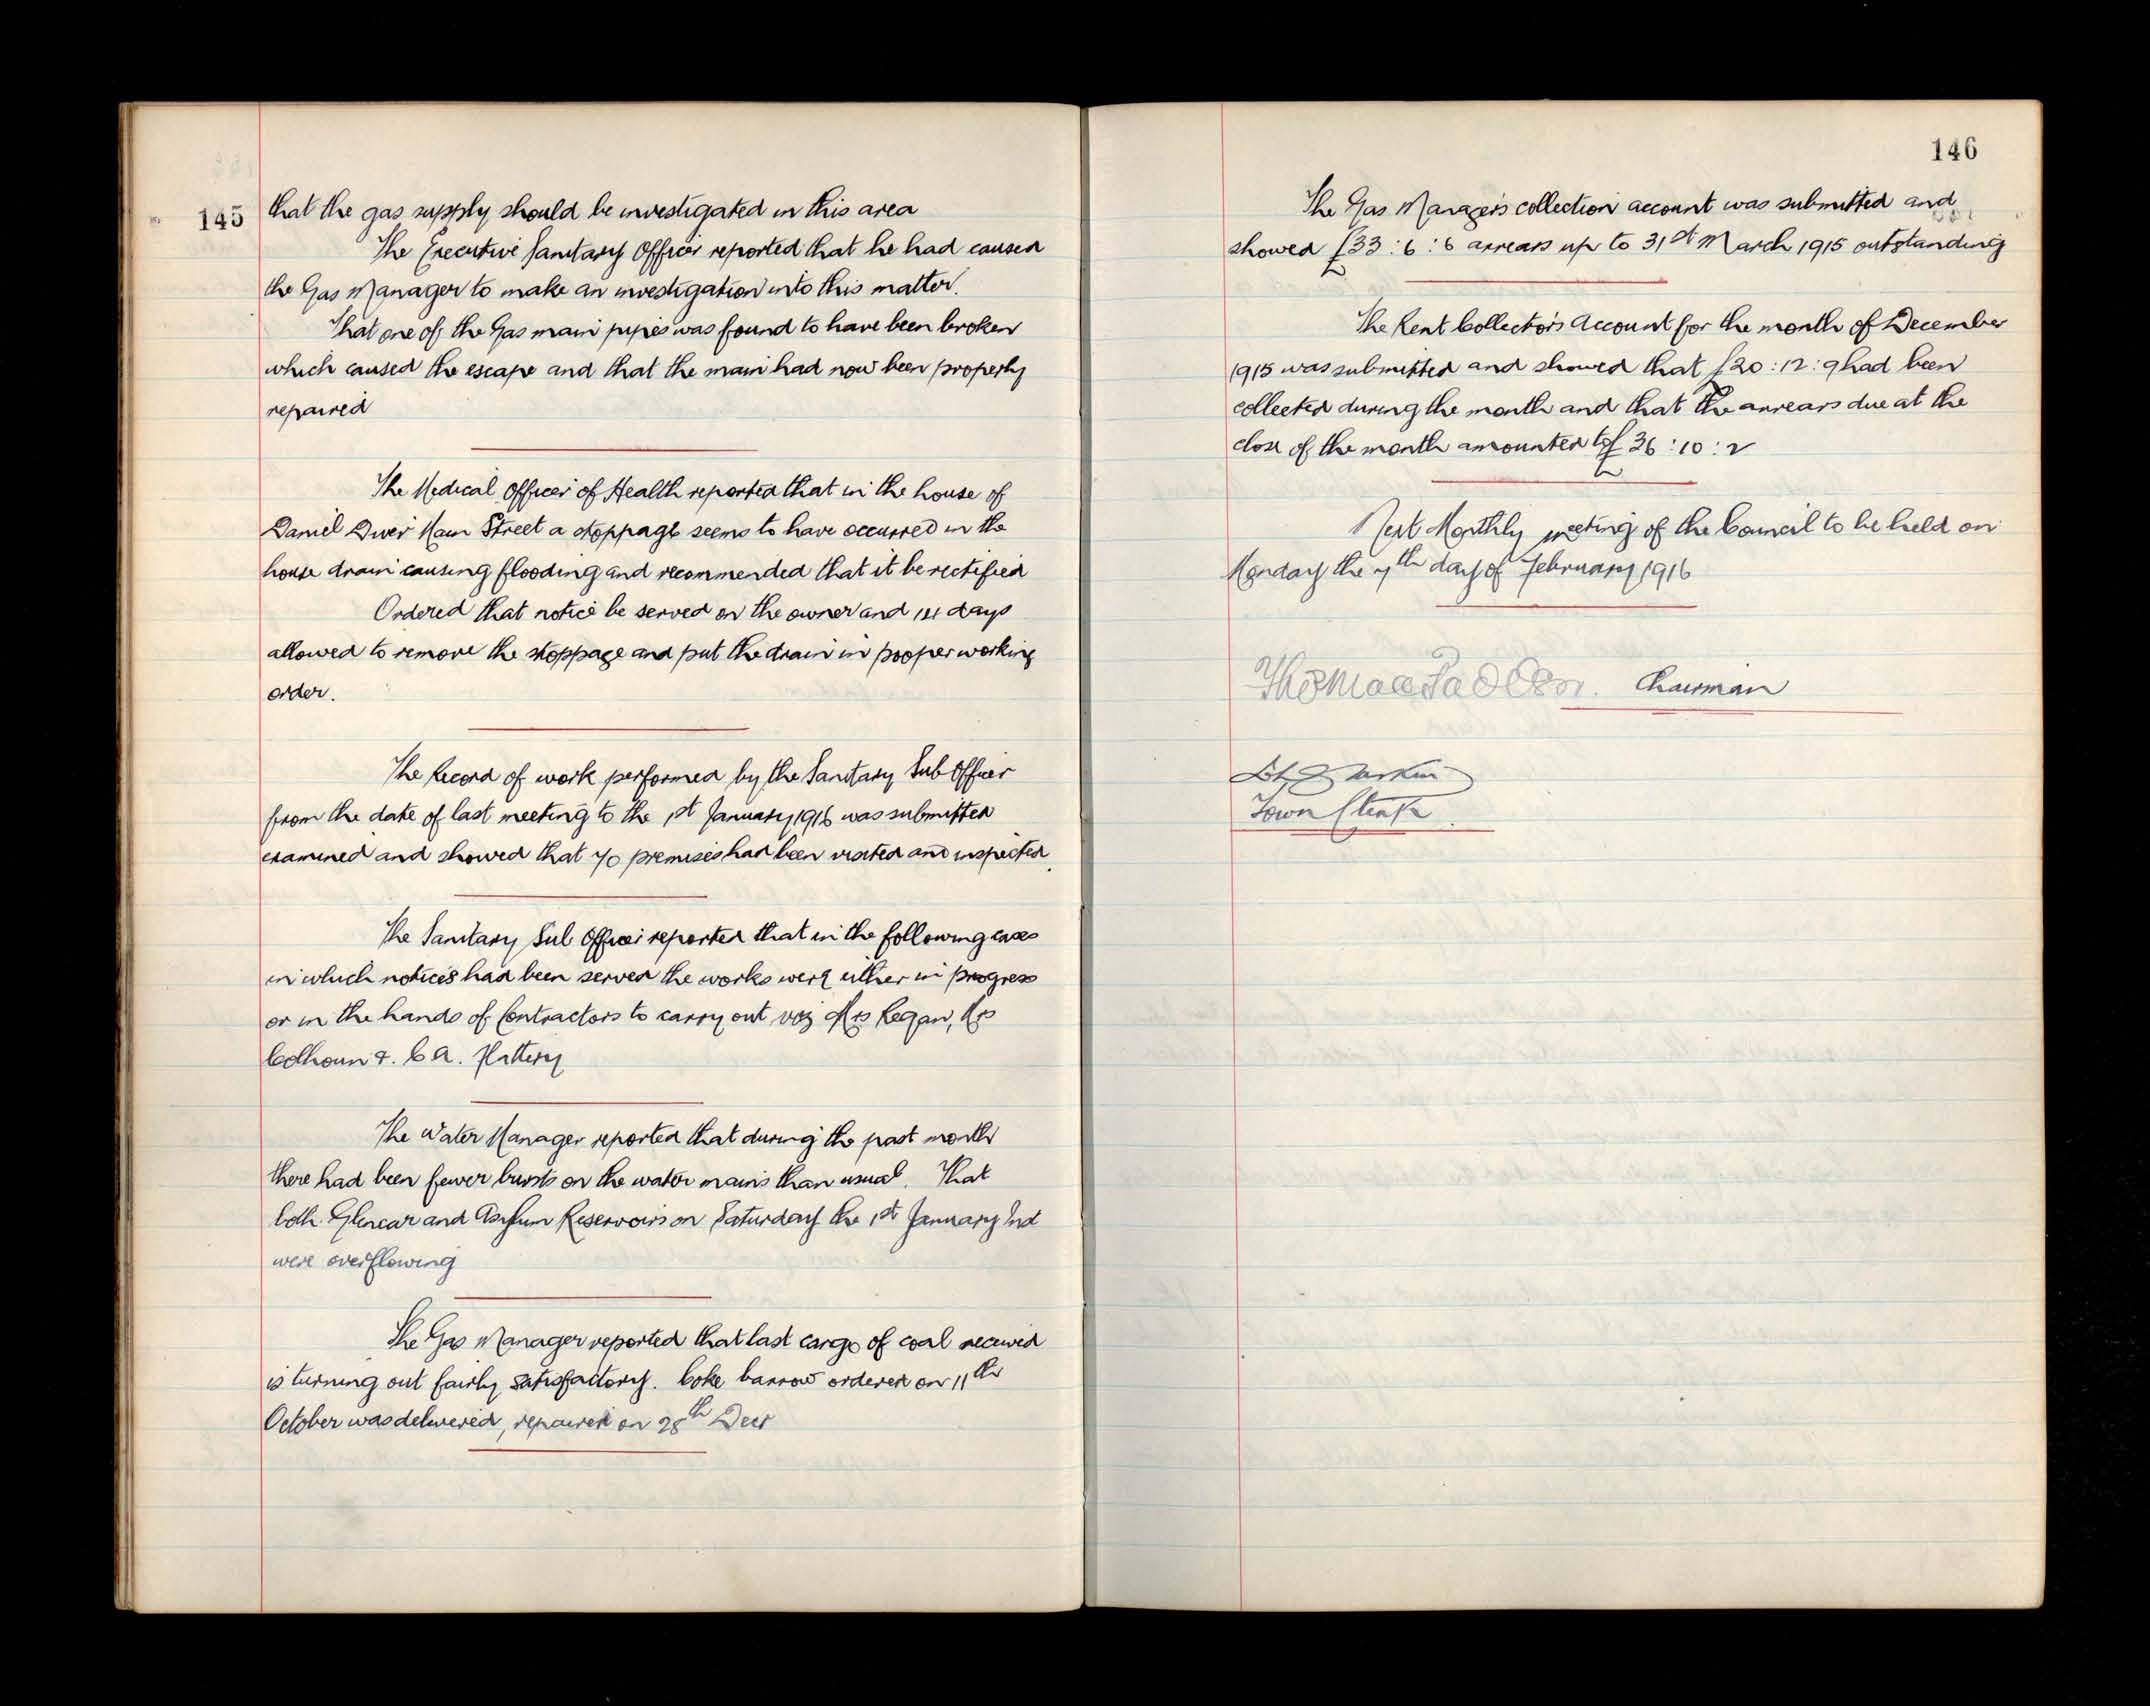 145
that the gas supply should be investigated in this area
The Executive Sanitary Officer reported that he had caused
the Gas Manager to make an investigation into this matter.
That one of the Gas main pipes was found to have been broken
which caused the escape and that the main had now been properly
repaired
The Medical Officer of Health reported that in the house of
Daniel Main Street a stoppage seems to have occurred in the
house drain causing flooding and recommended that it be rectified
Ordered that notice be served on the owner and 14 days
allowed to remove the stoppage and put the drain in proper working
order.
The Record of work performed by the Sanitary Sub Officer
from the date of last meeting to the 1st January 1916 was submitted
examined and showed that 70 premises had been visited and inspected.
The Sanitary Sub Officer reported that in the following cases
in which notices had been served the works were either in progress
or in the hands of Contractors to carry out viz Mrs Regan, Mrs
Colhoun & C A. Flattery
The Water Manager reported that during the past month
there had been fewer bursts on the water mains than usual. That
both Glencar and Asylum Reservoirs on Saturday the 1st January Inst
were overflowing
The Gas Manager reported that last cargo of coal received
is turning out fairly satisfactory. Coke barrow ordered on 11th
October was delivered, repaired on 28th Decr
146
The Gas Manager's collection account was submitted and
showed £33:6:6 arrears up to 31st March 1915 outstanding
The Rent Collector's Account for the month of December
1915 was submitted and showed that £20:12:9 had been
collected during the month and that the arrears due at the
close of the month amounted to £36:10:2
Next Monthly meeting of the Council to be held on
Monday the 7th day of February 1916
Thomas Chairman
Town Clerk